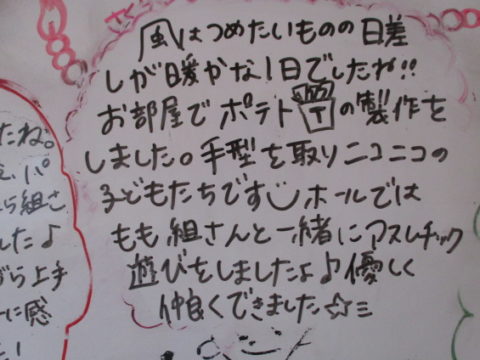 風はつめたいものの日差
しが暖かな1日でしたね!!
お部屋でポテトの製作を
しました。手型を取りニコニコの
子どもたちです ホールでは
もも組さんと一緒にアスレチック
遊びをしましたよ♪優しく
仲良くできました☆ミ
たね。
ら組さ
したよ♪
がら上手
に感